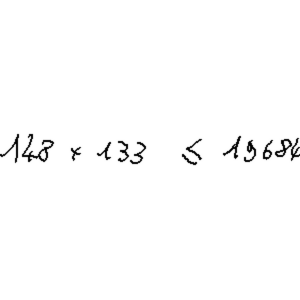 148 × 133 ≤ 19684